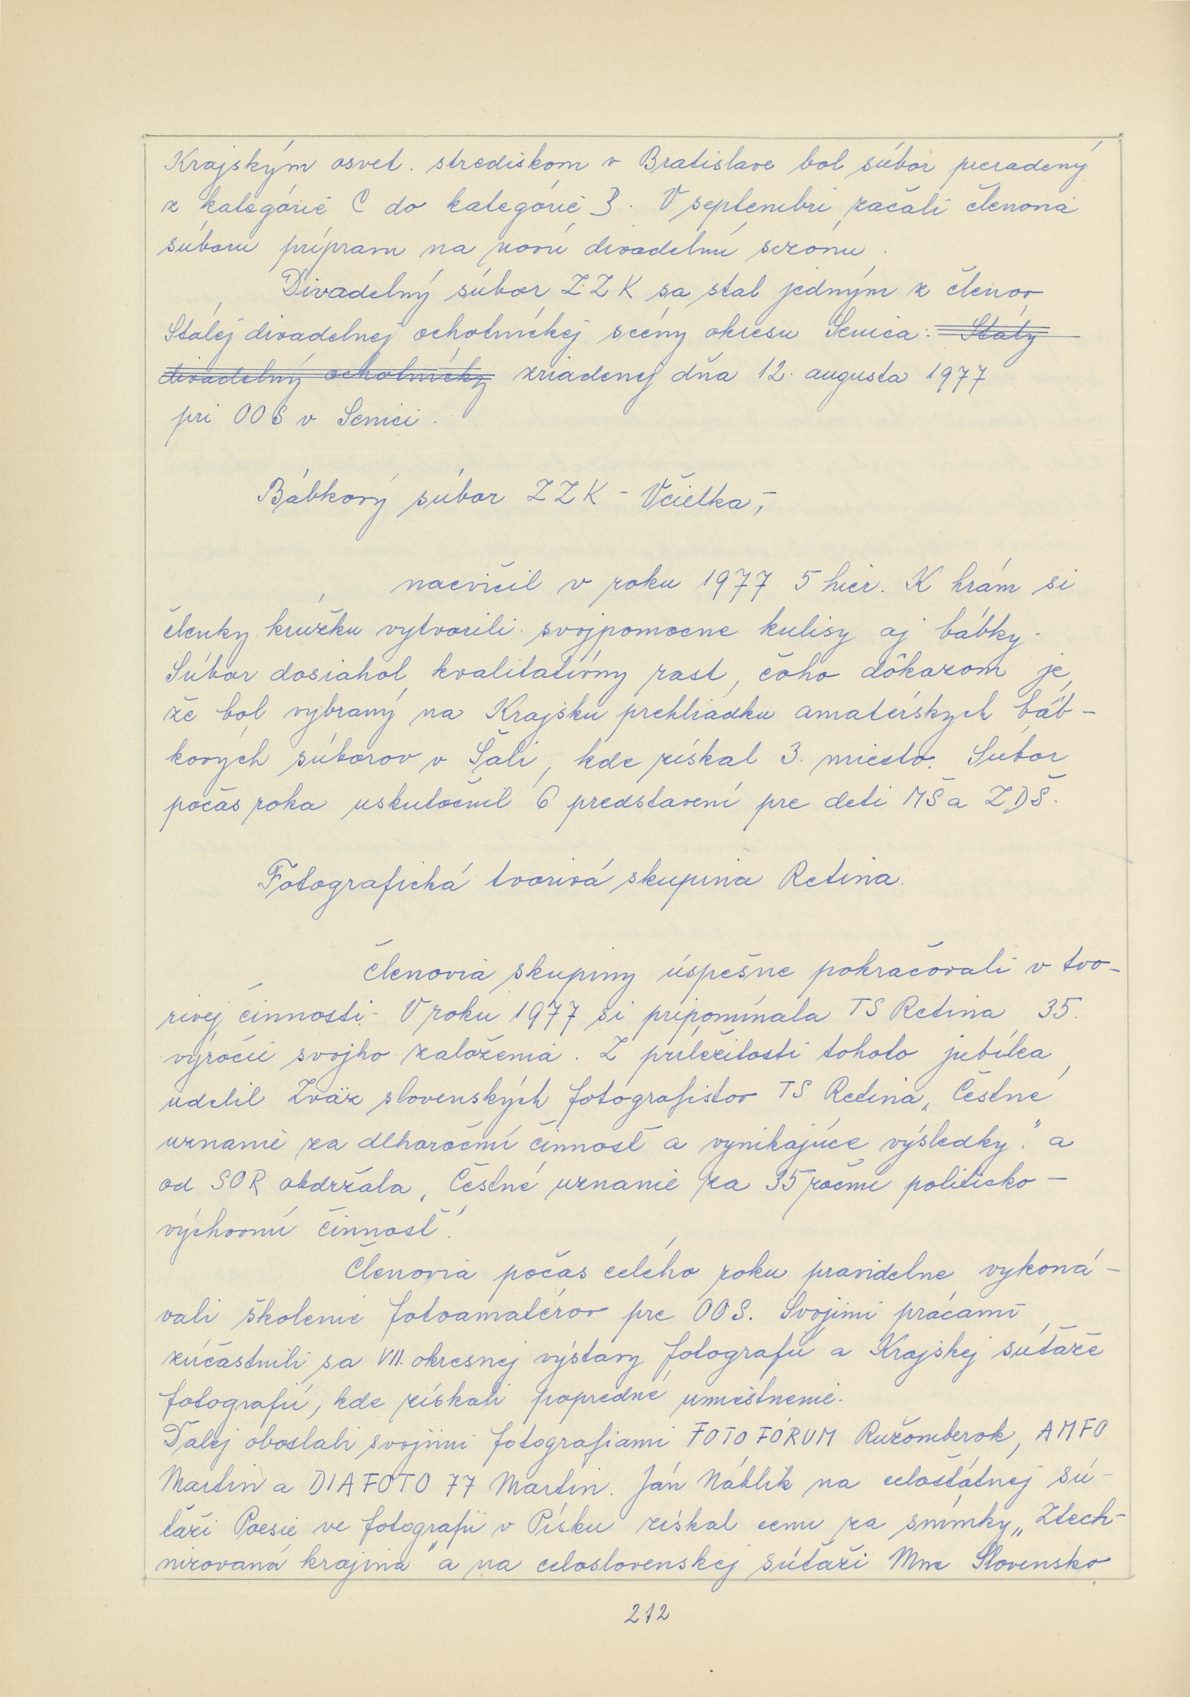 Krajským osvet. strediskom v Bratislave bol súbor preradený
z kategórie C do kategórie B. V septembri začali členovia
súboru prípravu na novú divadelnú sezónu.
Divadelný súbor ZZK sa stal jedným z členov
Stálej divadelnej ochotníckej scény okresu Senica. Stály
divadelný ochotnícky zriadenej dňa 12. augusta 1977
pri OOS v Senici.
Bábkový súbor ZZK - Včielka,-
nacvičil v roku 1977 5 hier. K hrám si
členky krúžku vytvorili svojpomocne kulisy aj bábky.
Súbor dosiahol kvalitatívny rast, čoho dôkazom je,
že bol vybraný na Krajskú prehliadku amatérskych báb-
kových súborov v Šali, kde získal 3. miesto. Súbor
počas roka uskutočnil 6 predstavení pre deti MŠ a ZDŠ.
Fotografická tvorivá skupina Retina.
Členovia skupiny úspešne pokračovali v tvo-
rivej činnosti. V roku 1977 si pripomínala TS Retina 35.
výročie svojho založenia. Z príležitosti tohoto jubilea,
udelil Zväz slovenských fotografistov TS Retina „Čestné
uznanie za dlhoročnú činnosť a vynikajúce výsledky." a
od SOR obdržala „Čestné uznanie za 35 ročnú politicko-
výchovnú činnosť".
Členovia počas celého roku pravidelne vykoná-
vali školenie fotoamatérov pre OOS. Svojimi prácami
zúčastnili sa VII. okresnej výstavy fotografií a Krajskej súťaže
fotografií, kde získali popredné umiestnenie.
Ďalej oboslali svojimi fotografiami FOTOFÓRUM Ružomberok, AMFO
Martin a DIAFOTO 77 Martin. Ján Náhlik na celoštátnej sú-
ťaži Poesie ve fotografii v Písku získal cenu za snímky „Ztech-
nizovaná krajina" a na celoslovenskej súťaži Mne Slovensko
212